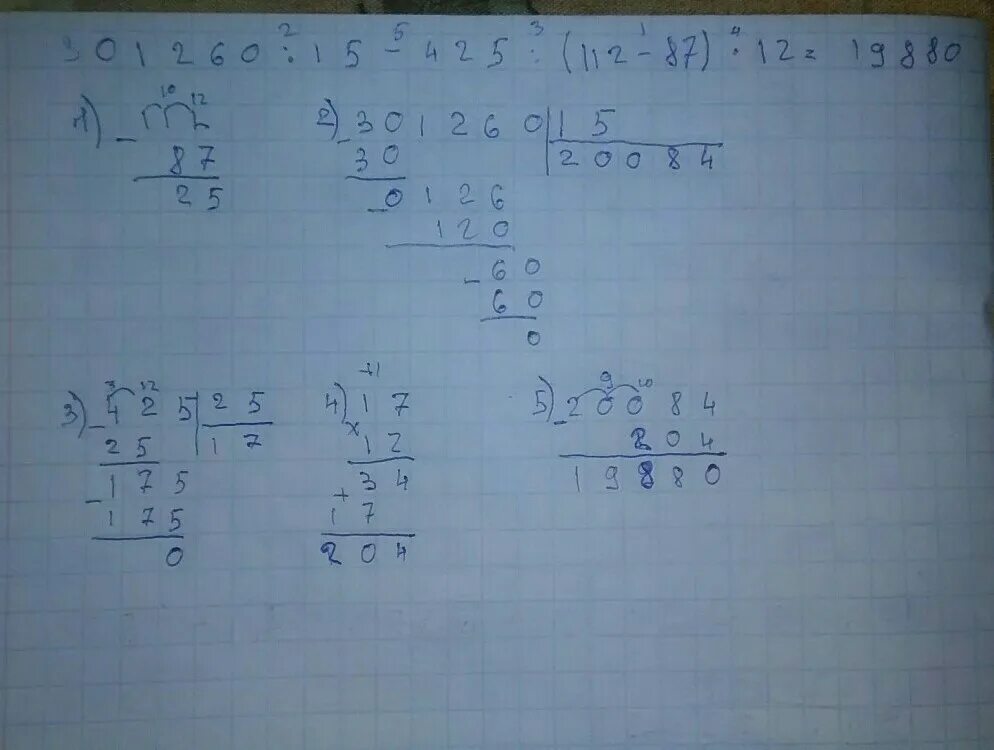 301260 : 15 - 425 : (112 - 87) · 12 = 19880
2 5 3 1 4
1) 10 12
- 112
87
25
2) - 301260 | 15
30 20084
- 0126
120
- 60
60
0
3) 3 12
- 425 | 25
25 17
- 175
175
0
4) +1
17
x 12
+ 34
17
204
5) 9 10
- 20084
204
19880